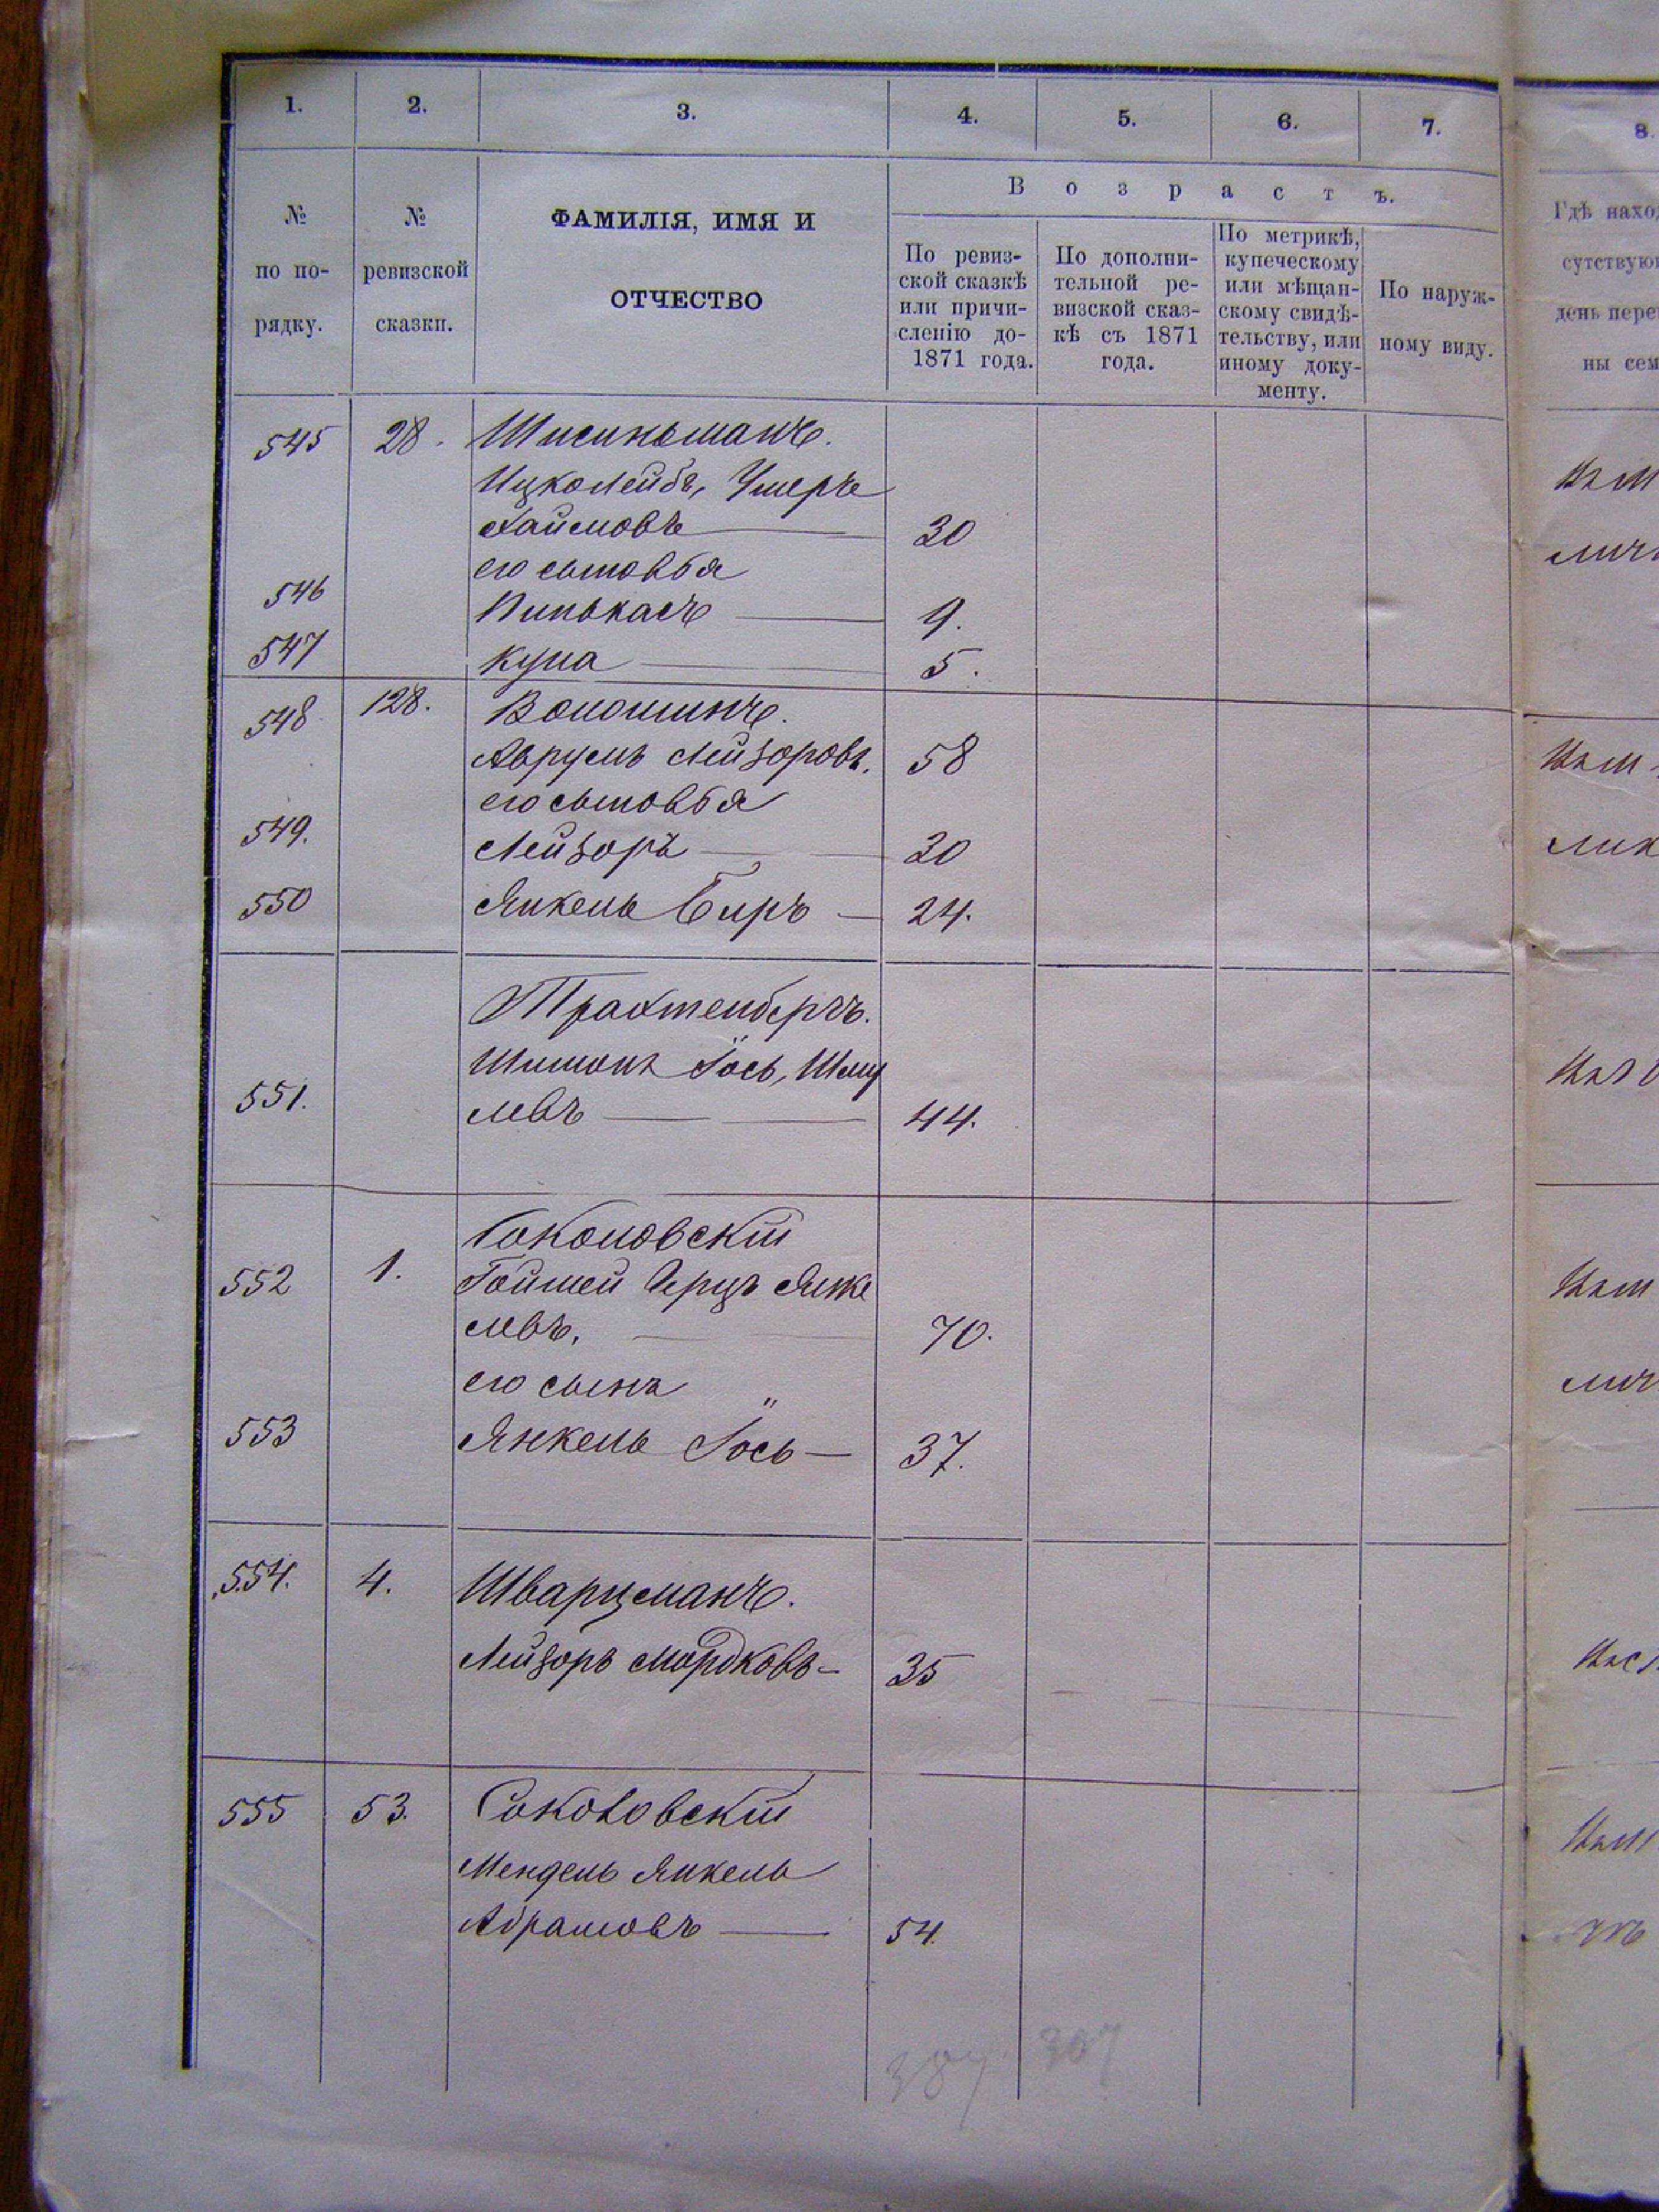 1. 2. 3. 4. 5. 6. 7. 8.
В о з р а с т ъ.
№ по по- рядку.
№ ревизской сказки.
ФАМИЛІЯ, ИМЯ И
ОТЧЕСТВО
По ревиз-
ской сказкѣ
или причи-
сленію до-
1871 года.
По дополни-
тельной ре-
визской сказ-
кѣ съ 1871
года.
По метрикѣ,
купеческому
или мѣщан-
скому свидѣ-
тельству, или
иному доку-
менту.
По наруж-
ному виду.
Гдѣ нахо
сутствую
день пере
ны сем
545 28.
Ицколейбъ, Умеръ
Хаимовъ 30
его сыновья
546 Пинькасъ 9.
547 Купа 5.
548 128. Волошинъ.
Аврумъ Лейзоровъ. 58
его сыновья
549. Лейзоръ 30
550 Янкель Беръ 24.
Трахтенбергъ.
Шимонъ Іось, Шму
551. левъ 44.
Соколовскій
552 1. Гойшей Герцъ Янке
левъ. 70.
его сынъ
553 Янкель Іось 37.
554. 4. Шварцманъ.
Лейзоръ Мордковъ 35
555 53. Соколовскій
Мендель Янкель
Абрамовъ 54.
387 307